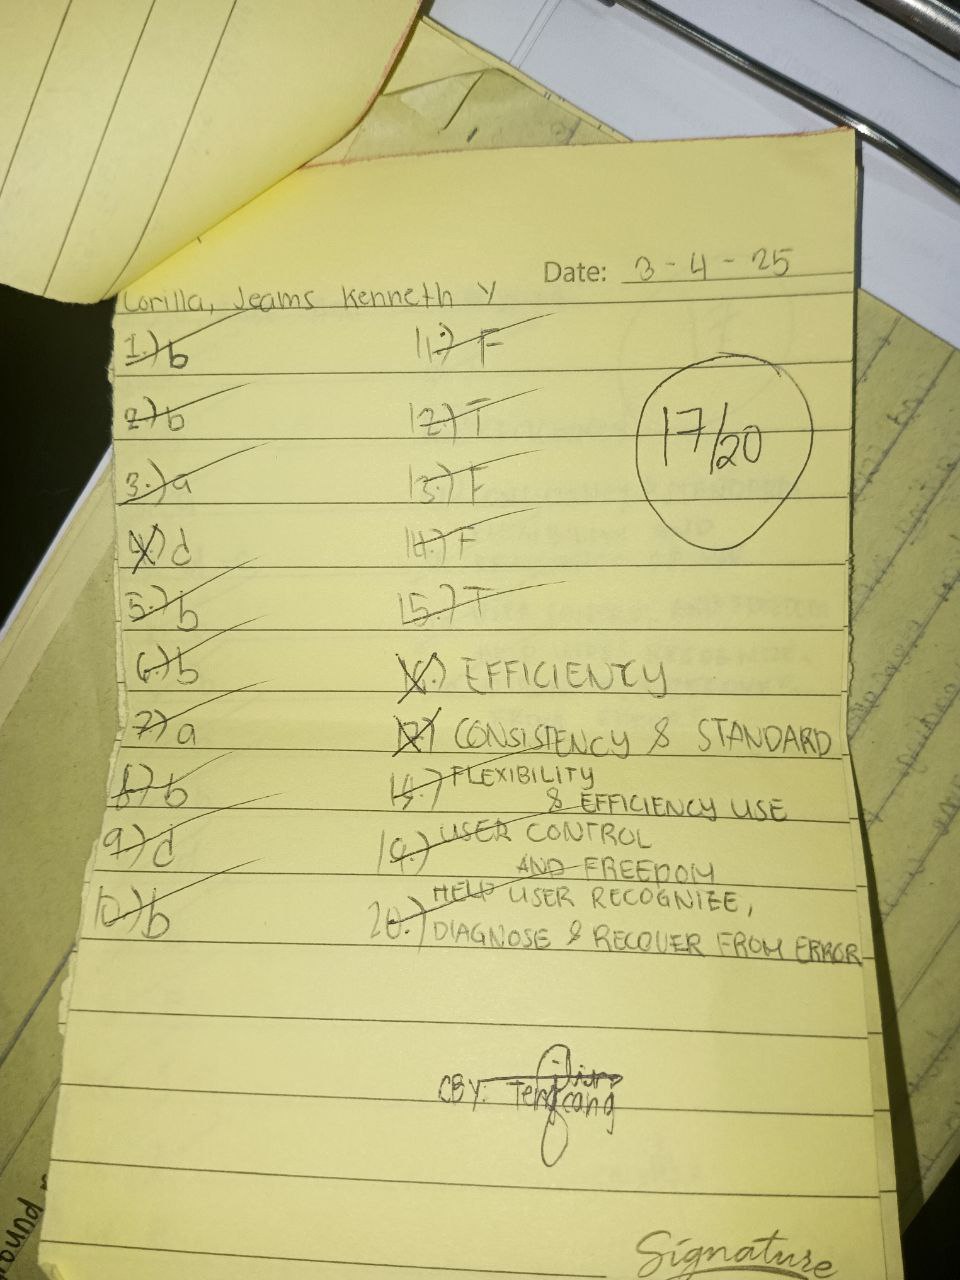 Date: 3-4-25
Lorilla, Jeams Kenneth Y
1.) b
2.) b
3.) a
4.) d
5.) b
6.) b
7.) a
8.) b
9.) d
10.) b
11.) F
12.) T
13.) F
14.) F
15.) T
16.) EFFICIENCY
17.) CONSISTENCY & STANDARD
18.) FLEXIBILITY
& EFFICIENCY USE
19.) USER CONTROL
AND FREEDOM
20.) HELP USER RECOGNIZE,
DIAGNOSE & RECOVER FROM ERROR
17/20
CBY:
Signature
ound